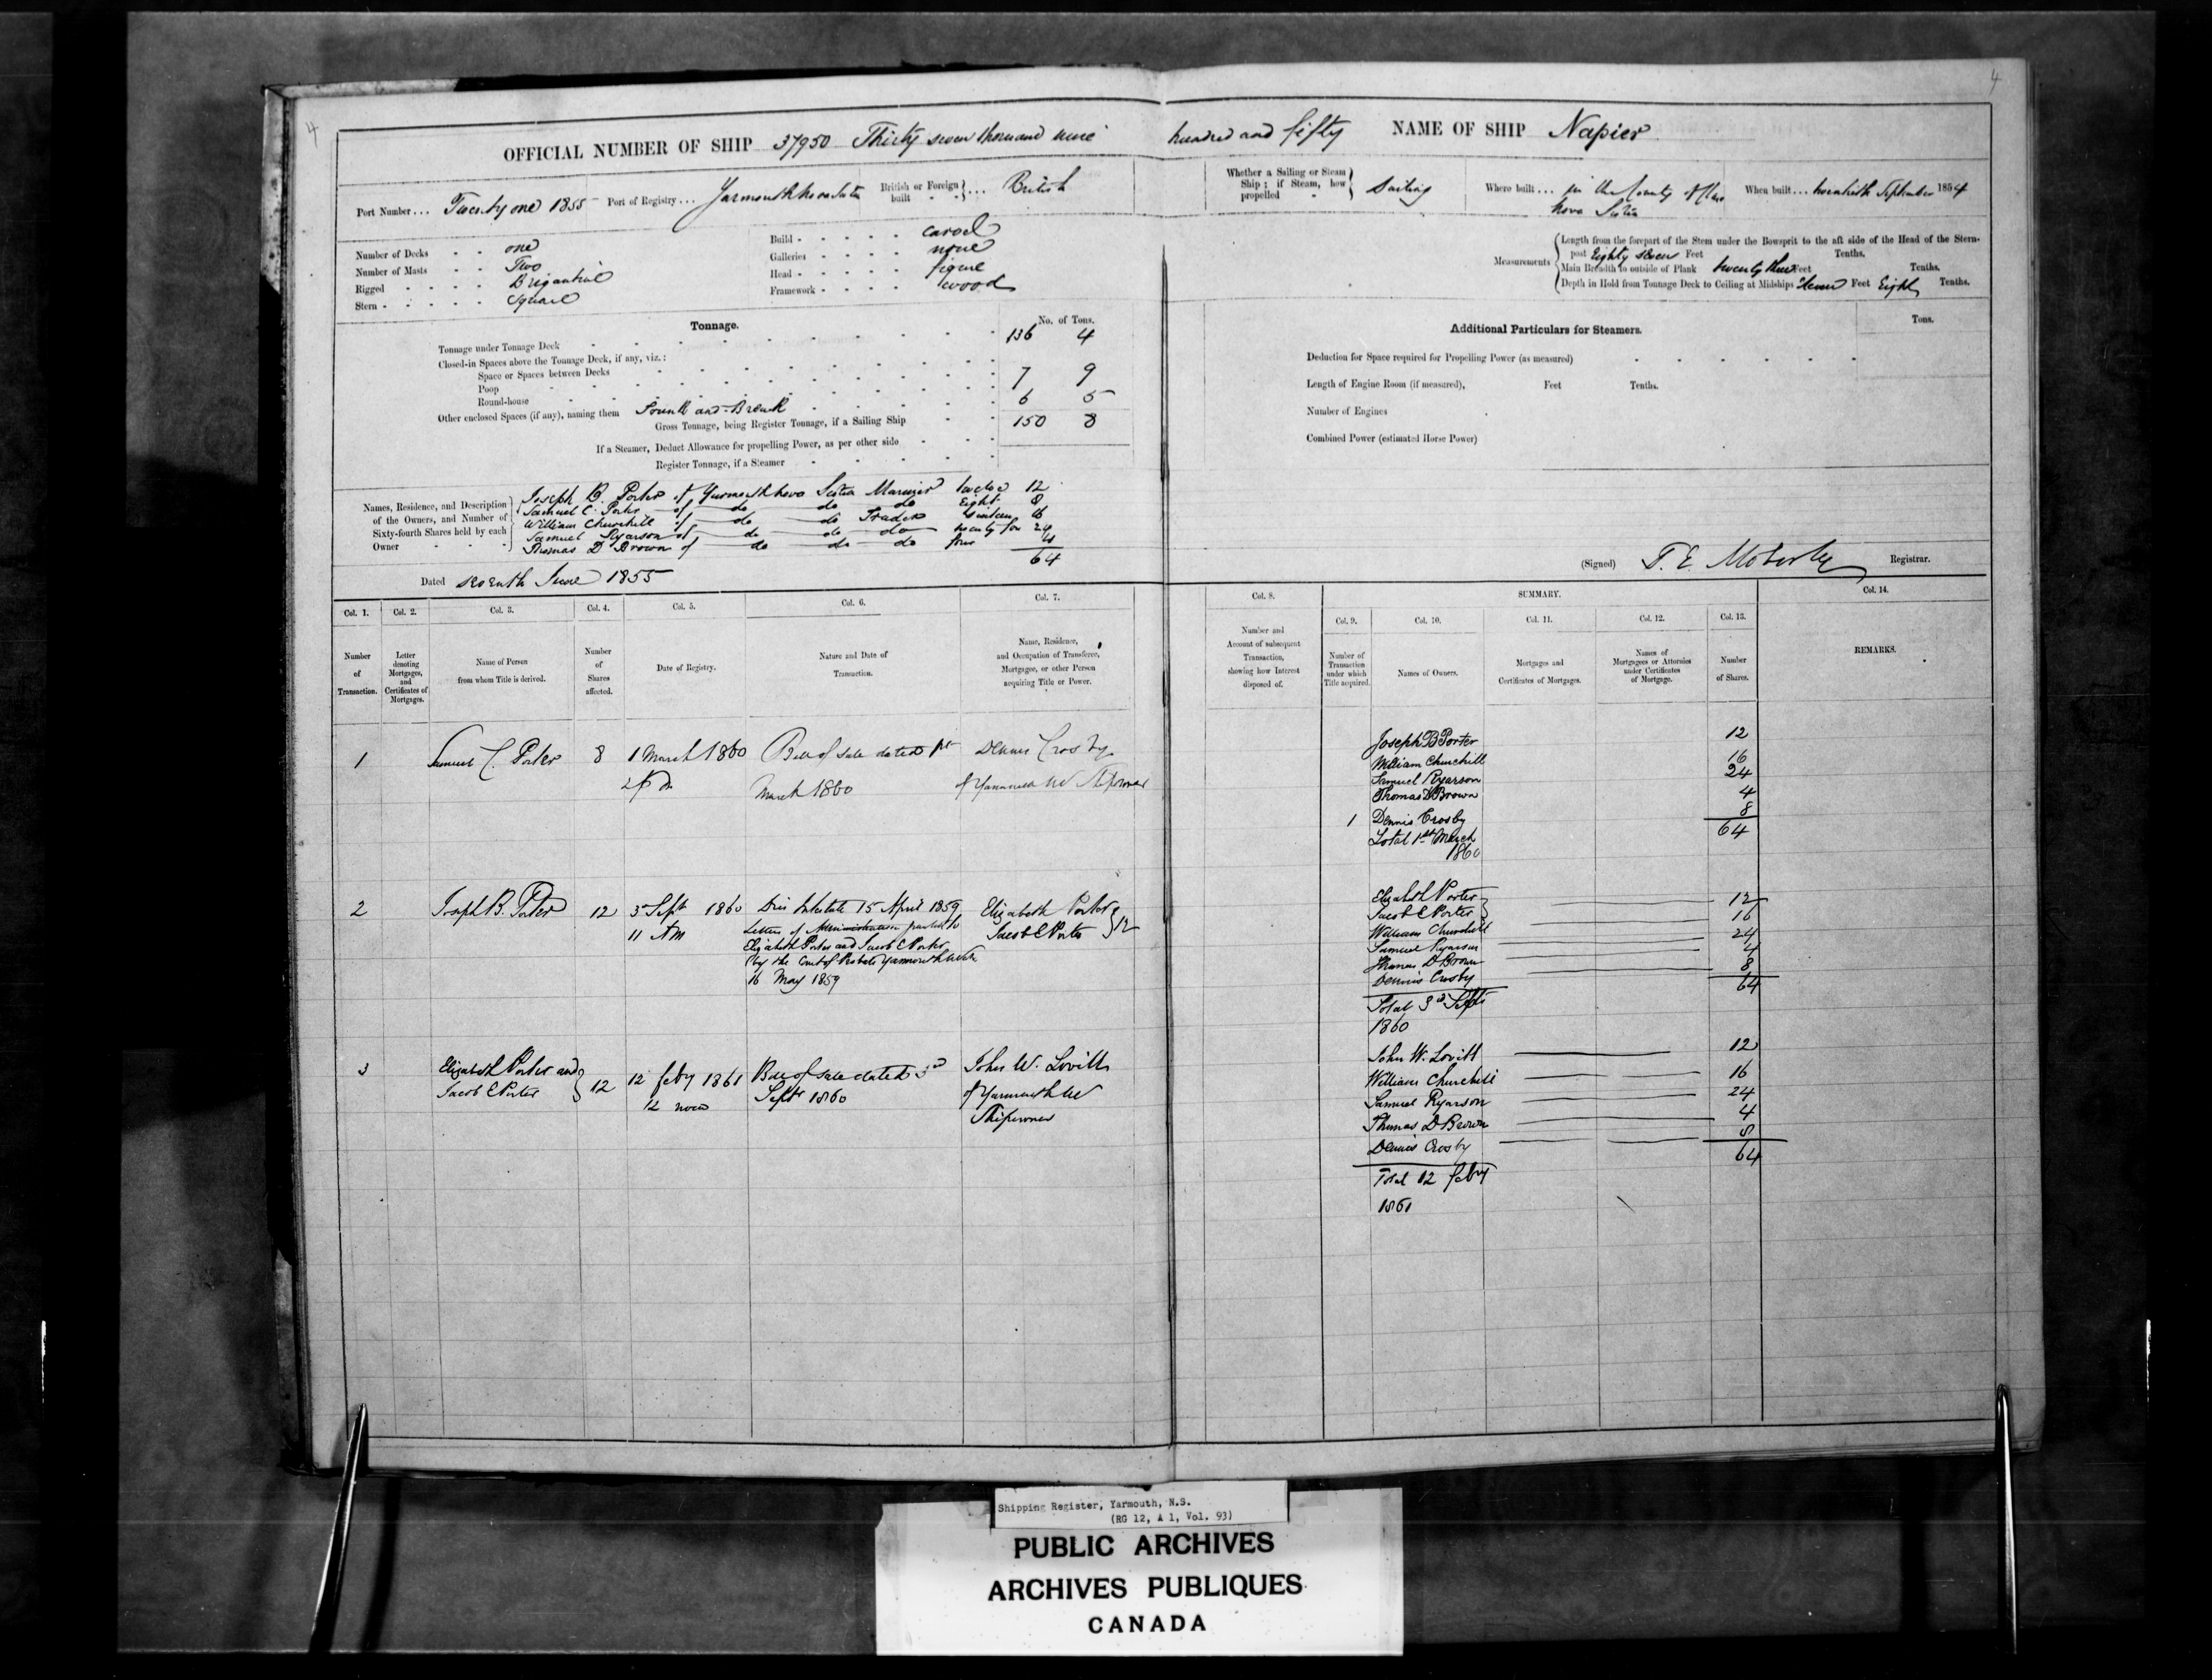 4
4
OFFICIAL NUMBER OF SHIP 37950 Thirty seven thousand nine hundred and fifty NAME OF SHIP Napier
Port Number ... Twenty one 1855 Port of Registry ... Yarmouth Nova Scotia British or Foreign built ... British
Whether a Sailing or Steam Ship; if Steam, how propelled Sailing Where built ... in the County of Nova Scotia When built ... September 1854
Number of Decks one
Number of Masts Two
Rigged Brigantine
Stern Square
Build carvel
Galleries none
Head figure
Framework wood
Measurements
Length from the forepart of the Stem under the Bowsprit to the aft side of the Head of the Stern-
post Eighty seven Feet Tenths.
Main Breadth to outside of Plank twenty three Feet Tenths.
Depth in Hold from Tonnage Deck to Ceiling at Midships Feet Eight Tenths.
Tonnage. No. of Tons.
Tonnage under Tonnage Deck 136 4
Closed-in Spaces above the Tonnage Deck, if any, viz.:
Space or Spaces between Decks
Poop 7 9
Round-house
Other enclosed Spaces (if any), naming them and Break 6 5
Gross Tonnage, being Register Tonnage, if a Sailing Ship 150 8
If a Steamer, Deduct Allowance for propelling Power, as per other side
Register Tonnage, if a Steamer
Additional Particulars for Steamers. Tons.
Deduction for Space required for Propelling Power (as measured)
Length of Engine Room (if measured), Feet Tenths.
Number of Engines
Combined Power (estimated Horse Power)
Names, Residence, and Description of the Owners, and Number of Sixty-fourth Shares held by each Owner
Joseph B. Porter of Yarmouth Nova Scotia Mariner twelve 12
Samuel C. Porter of do do do Eight 8
William Churchill of do do Trader sixteen 16
Samuel Ryarson of do do do twenty four 24
Thomas D Brown of do do do four 4
64
Dated seventh June 1855
(Signed) T. E. Moberly Registrar.
Col. 1. Col. 2. Col. 3. Col. 4. Col. 5. Col. 6. Col. 7.
Number of Transaction.
Letter denoting Mortgages, and Certificates of Mortgages.
Name of Person from whom Title is derived.
Number of Shares affected.
Date of Registry.
Nature and Date of Transaction.
Name, Residence, and Occupation of Transferee, Mortgagee, or other Person acquiring Title or Power.
Col. 8. SUMMARY. Col. 14.
Col. 9. Col. 10. Col. 11. Col. 12. Col. 13.
Number and Account of subsequent Transaction, showing how Interest disposed of.
Number of Transaction under which Title acquired.
Names of Owners.
Mortgages and Certificates of Mortgages.
Names of Mortgagees or Attornies under Certificates of Mortgage.
Number of Shares.
REMARKS.
1 Samuel C. Porter 8 1 March 1860 Bill of sale dated 1st Dennis Crosby
March 1860 of Yarmouth NS Shipowner
Joseph B Porter 12
William Churchill 16
Samuel Ryarson 24
Thomas D Brown 4
1 Dennis Crosby 8
Total 1st March 64
1860
2 Joseph B. Porter 12 3 Sept 1860 Died Intestate 15 April 1859 Elizabeth Porter
11 AM Letters of Administration granted to Jacob C Porter 12
Elizabeth Porter and Jacob C Porter
by the Court of Probate Yarmouth
16 May 1859
Elizabeth Porter
Jacob C Porter 12
William Churchill 16
Samuel Ryarson 24
Thomas D Brown 4
Dennis Crosby 8
64
Total 3d Sept
1860
3 Elizabeth Porter and 12 12 feby 1861 Bill of sale dated 3d John W. Lovitt
Jacob C Porter 12 noon Sept 1860 of Yarmouth NS
Shipowner
John W. Lovitt 12
William Churchill 16
Samuel Ryarson 24
Thomas D Brown 4
Dennis Crosby 8
64
Total 12 feby
1861
Shipping Register, Yarmouth, N.S.
(RG 12, A 1, Vol. 93)
PUBLIC ARCHIVES
ARCHIVES PUBLIQUES
CANADA